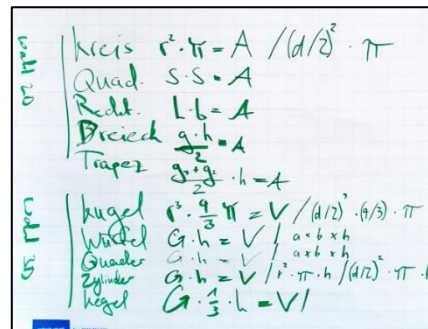 Kreis r² · π = A / (d/2)² · π
Quad. S · S = A
Recht. L · b = A
Dreieck g · h / 2 = A
Trapez g₁ + g₂ / 2 · h = A
Kugel r³ · 4/3 π = V / (d/2)³ · (4/3) · π
Würfel G · h = V / a × b × h
Quader G · h = V / a × b × h
Zylinder G · h = V / r² · π · h / (d/2)² · π · h
Kegel G · 1/3 · h = V /